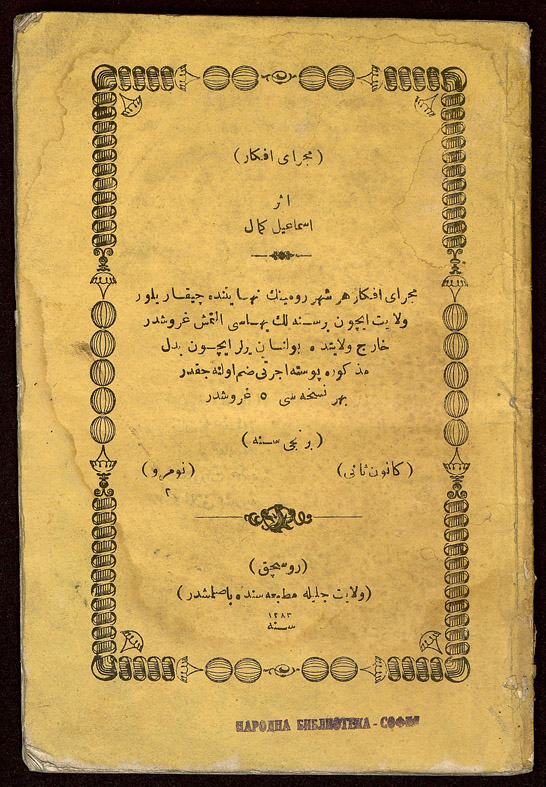 (مجرای افكار)
اثر
اسماعیل كمال
مجرای افكار هر شهر رومینك نهایتنده چیقار بلور
ولایت ایچون برسنه لك بهاسی التمش غروشدر
خارج ولایتده بولنان یرلر ایچون بدل
مذكوره پوسته اجرتی ضم اولنه جقدر
بهر نسخه سی ٥ غروشدر
(برنجی سنه)
(كانون ثانی) (نومرو)
٢
(روسچق)
(ولایت جلیله مطبعه سنده باصلمشدر)
١٢٨٣
سنه
НАРОДНА БИБЛИОТЕКА - СОФИЯ